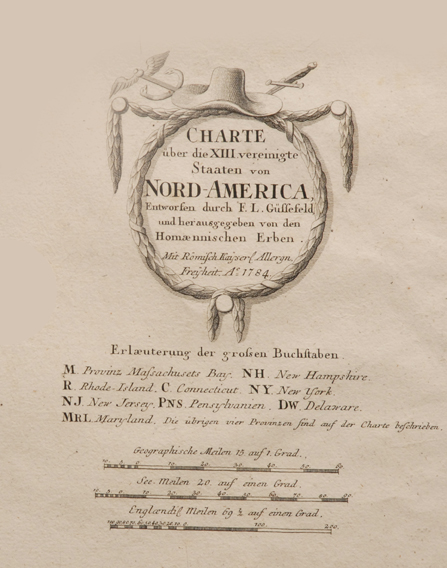 CHARTE
über die XIII vereinigte
Staaten von
NORD-AMERICA,
Entworfen durch F. L. Güssefeld
und herausgegeben von den
Homænnischen Erben.
Mit Römisch Kayserl. Allergn.
Freyheit. Aº 1784.
Erlæuterung der grossen Buchstaben.
M. Provinz Massachusets Bay. NH. New Hampshire.
R. Rhode-Island. C. Connecticut. NY. New York.
NJ. New Jersey. PNS. Pensylvanien. DW. Delaware.
MRL. Maryland. Die übrigen vier Provinzen sind auf der Charte beschrieben.
Geographische Meilen 15 auf 1. Grad.
10 20 30 40 50 60
See Meilen 20 auf einen Grad.
10 20 30 40 50 60 70 80
Englændis. Meilen 69 ½ auf einen Grad.
100 200